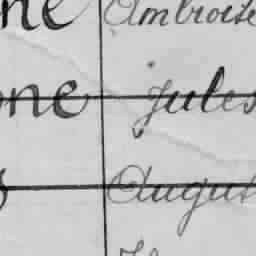 ne Ambroise
ne Jules
s August